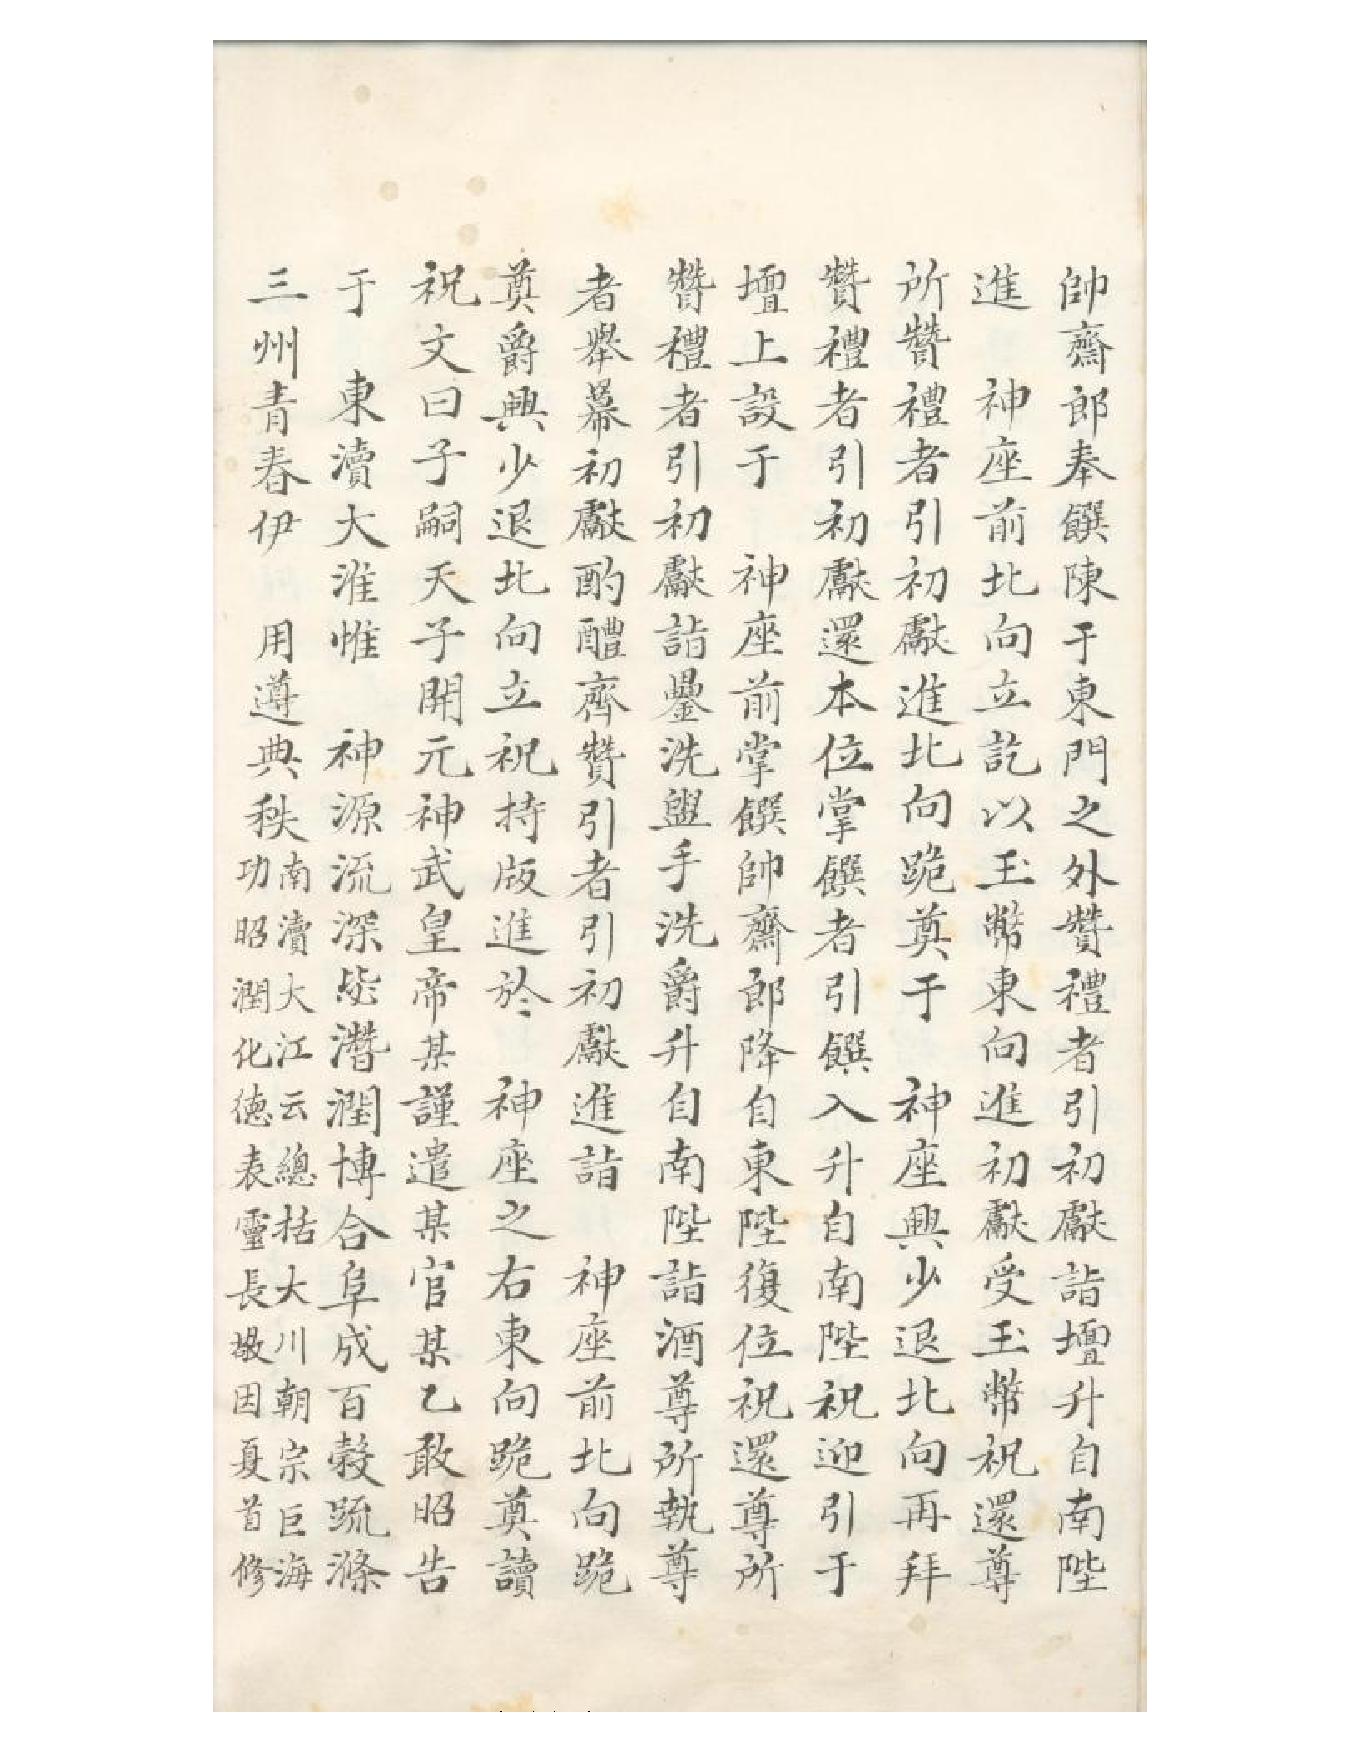 帥齋郎奉饌陳于東門之外贊禮者引初獻詣壇升自南陛
進　神座前北向立訖以玉幣東向進初獻受玉幣祝還尊
所贊禮者引初獻進北向跪奠于　神座興少退北向再拜
贊禮者引初獻還本位掌饌者引饌入升自南陛祝迎引于
壇上設于　神座前掌饌帥齋郎降自東陛復位祝還尊所
贊禮者引初獻詣罍洗盥手洗爵升自南陛詣酒尊所執尊
者舉冪初獻酌醴齊贊引者引初獻進詣　神座前北向跪
奠爵興少退北向立祝持版進於　神座之右東向跪奠讀
祝文曰子嗣天子開元神武皇帝某謹遣某官某乙敢昭告
于　東瀆大淮惟　神源流深毖潛潤博合阜成百穀疏滌
三州青春伊　用遵典秩
南瀆大江云總括大川朝宗巨海
功昭潤化德表靈長敬因夏首修